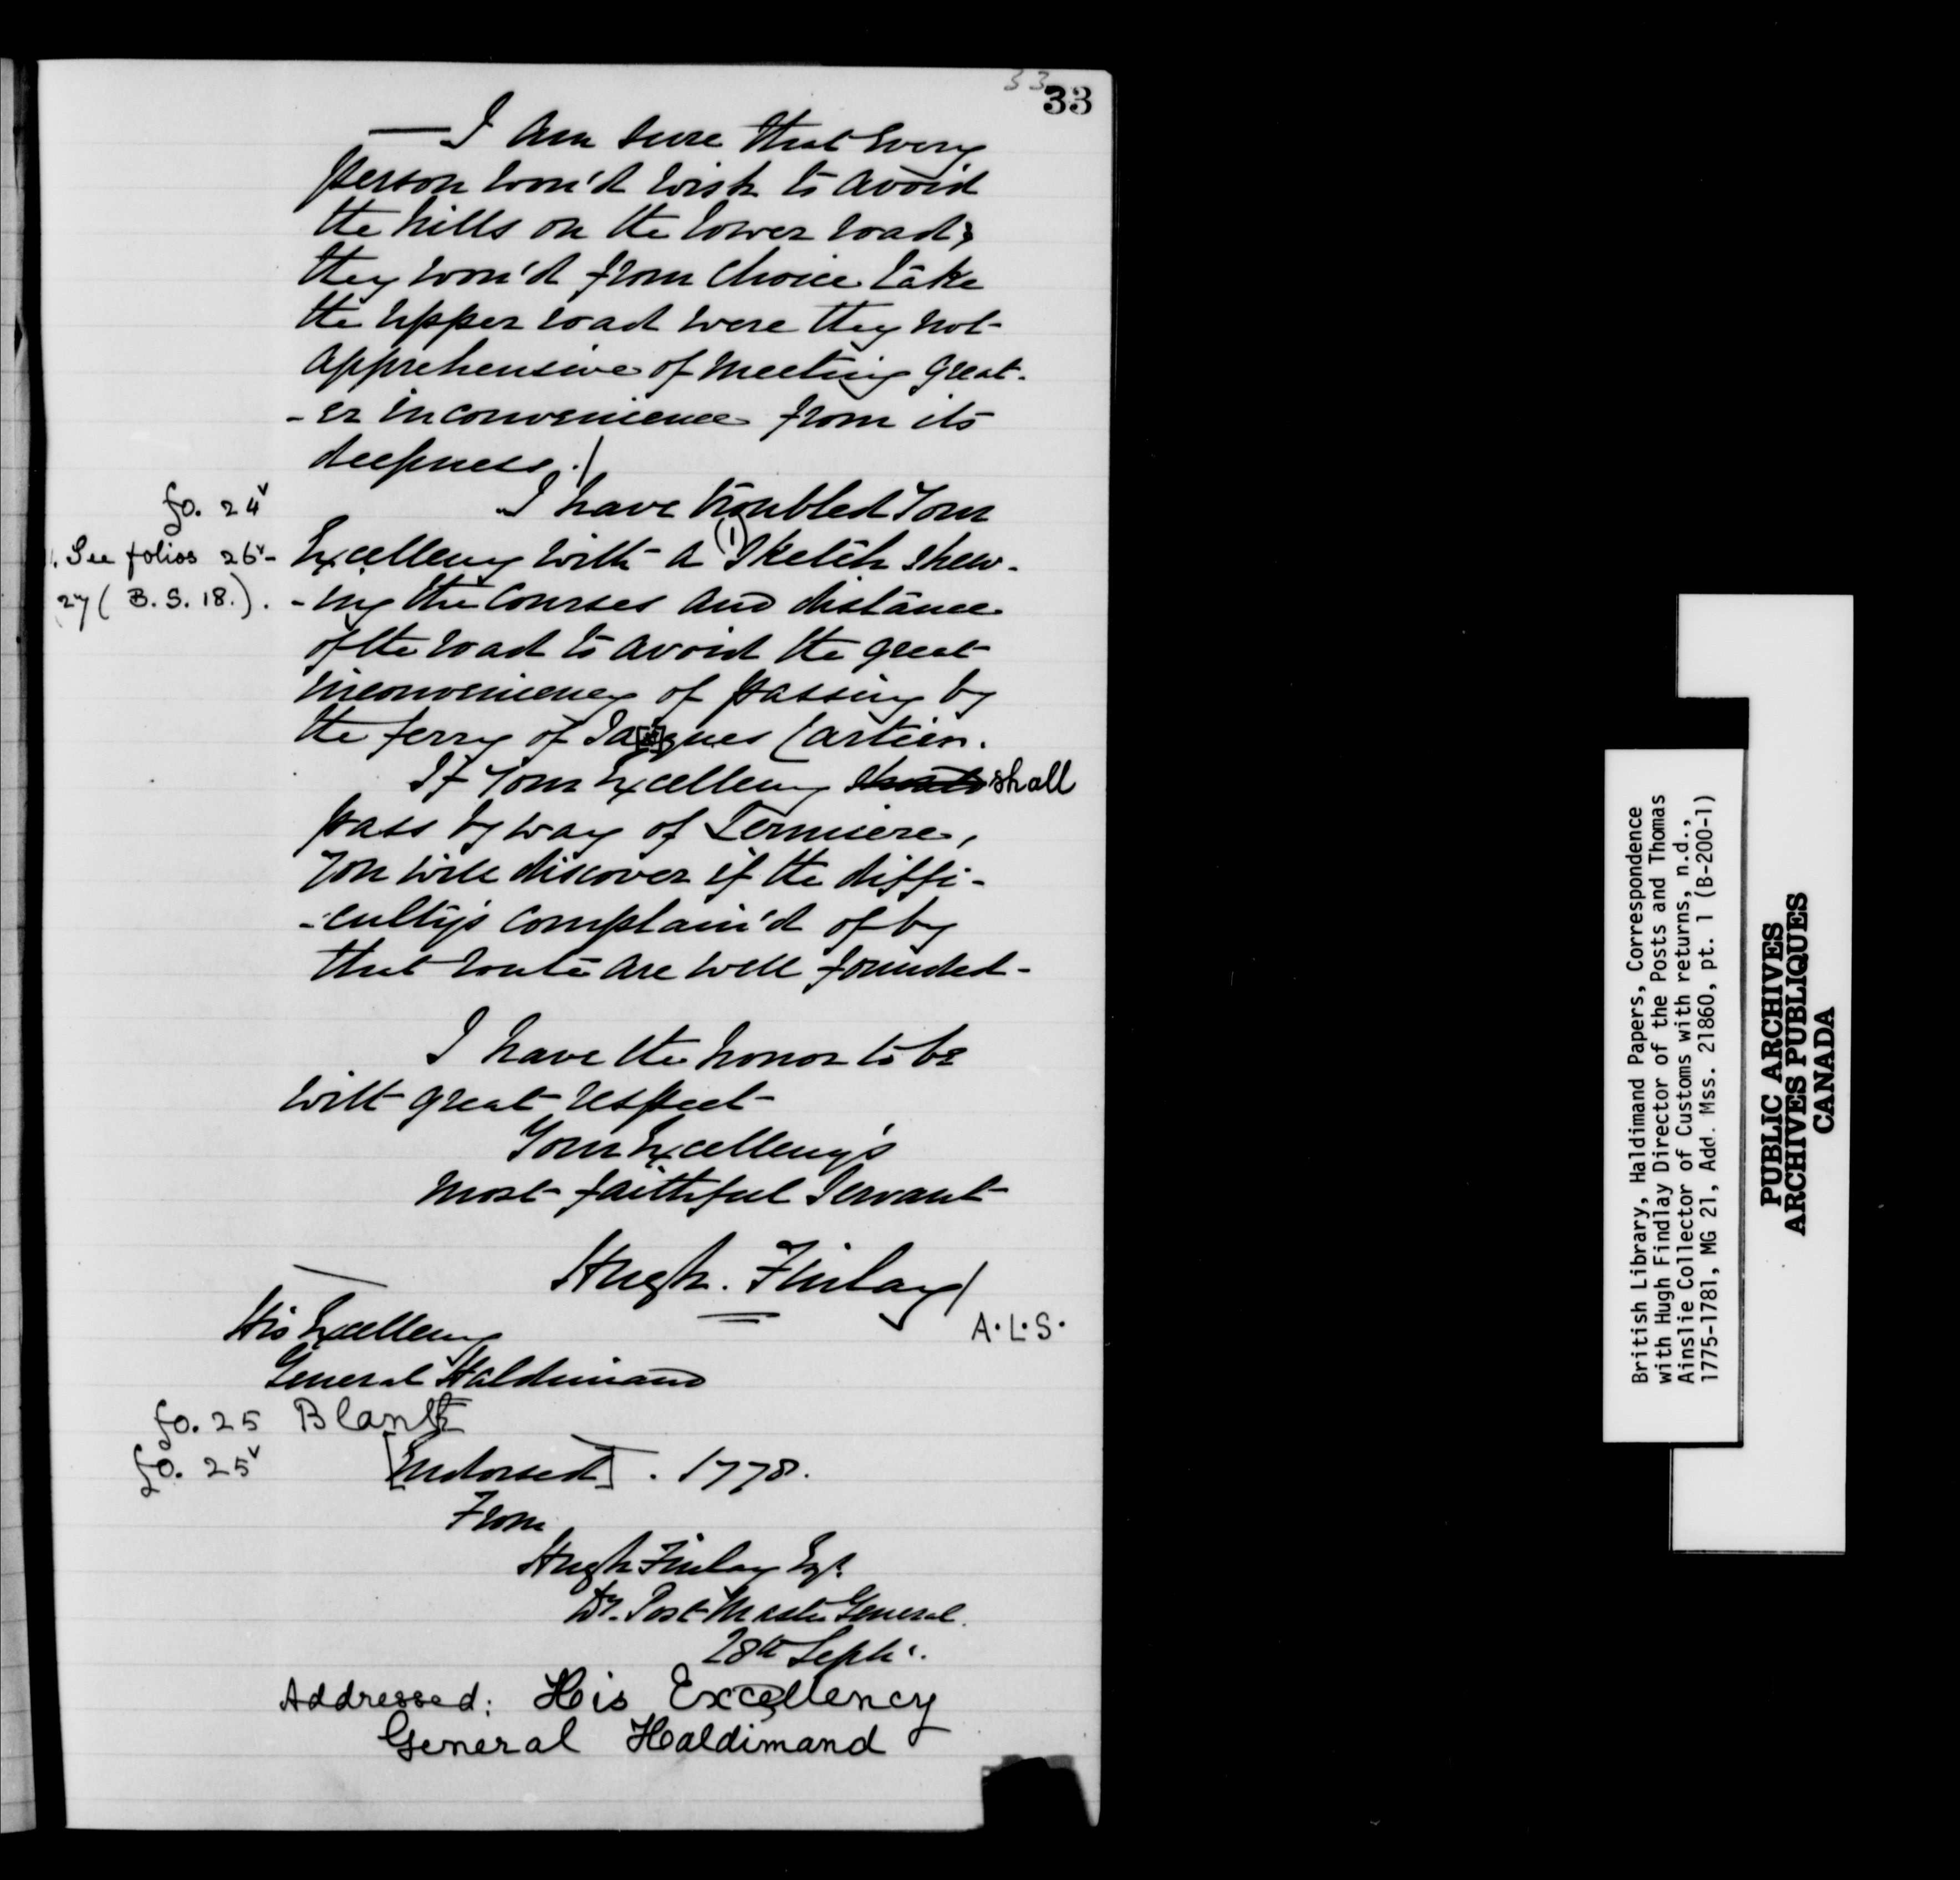 33
33
—I am sure that every
person wou'd wish to avoid
the hills on the lower road;
they wou'd from choice take
the upper road were they not
apprehensive of meeting great-
-er inconvenience from its
deepness ./
fo. 24v
I have troubled Your
1. See folios 26v-
27 (B.S. 18.).
Excellency with a (1) Sketch shew-
-ing the Courses and distance
of the road to avoid the great
inconveniency of passing by
the ferry of Jacques Cartier.
If Your Excellency shall
pass by way of
You will discover if the diffi-
-culty's complain'd of by
that route are well founded-
I have the honor to be
with great respect
Your Excellency's
most faithful Servant
Hugh. Finlay/
A.L.S.
His Excellency
General Haldimand
fo. 25 Blank
fo. 25v
[Endorsed]. 1778.
From
Hugh Finlay Esqr.
Dy. Post Master General.
28th Septr.
Addressed: His Excellency
General Haldimand
British Library, Haldimand Papers, Correspondence
with Hugh Findlay Director of the Posts and Thomas
Ainslie Collector of Customs with returns, n.d.,
1775-1781, MG 21, Add. Mss. 21860, pt. 1 (B-200-1)
PUBLIC ARCHIVES
ARCHIVES PUBLIQUES
CANADA